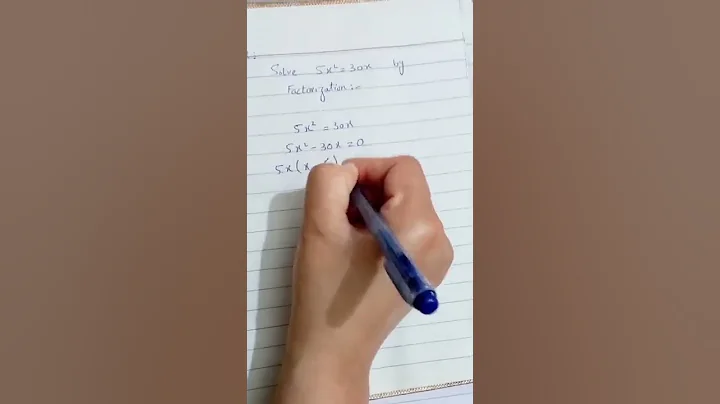 Solve 5x² = 30x by
Factorization:-
5x² = 30x
5x² - 30x = 0
5x(x - 6)